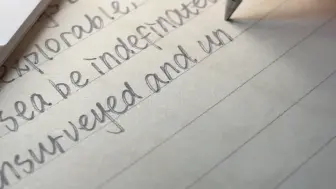 explorable,
sea be indefinate
nsurveyed and un